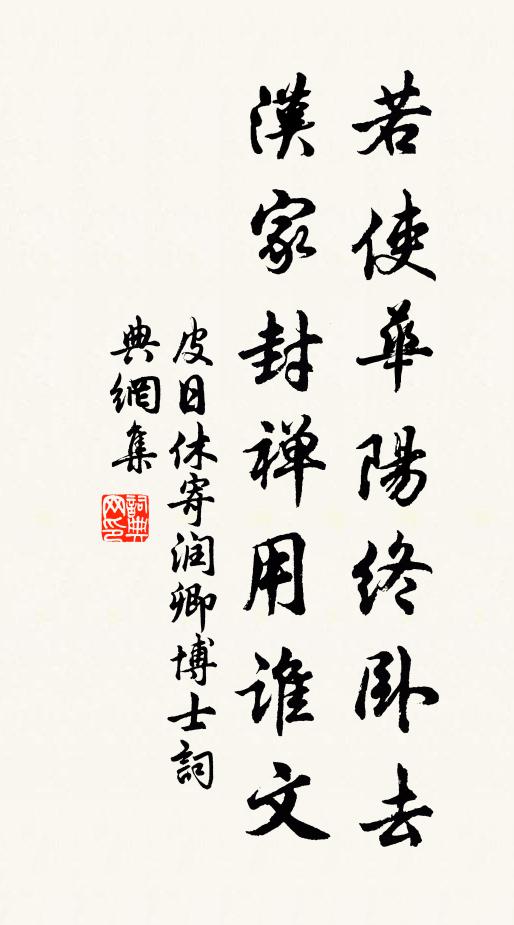 若使華陽終卧去
漢家封禅用誰文
皮日休寄润卿博士詞
典網集
詞典網印